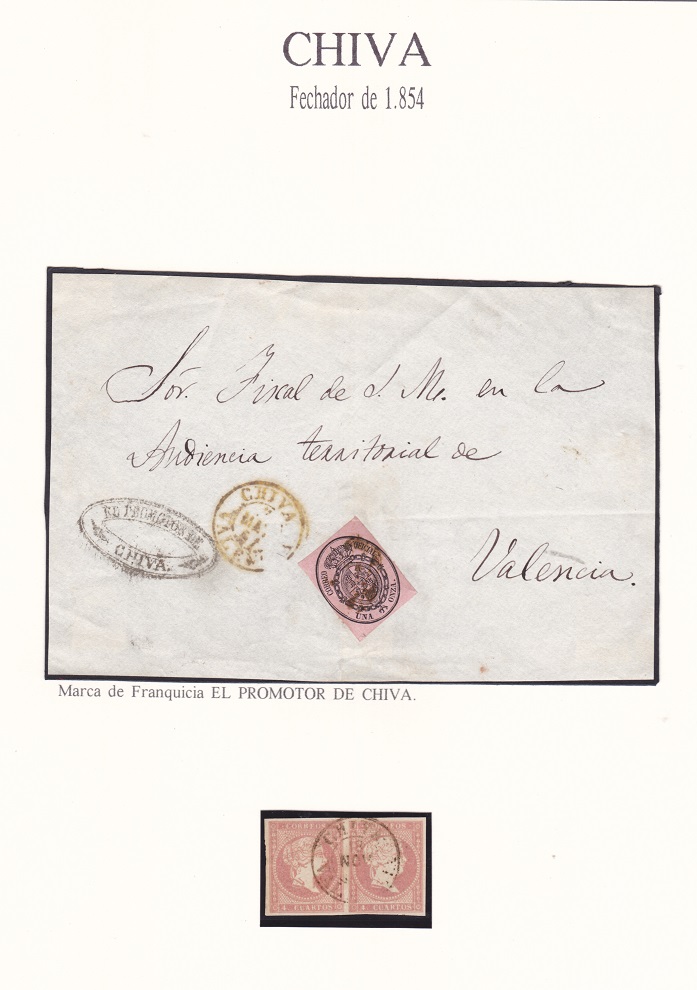 CHIVA
Fechador de 1.854
Sór. Fiscal de S. M. en la
Audiencia territorial de
Valencia.
EL PROMOTOR DE
CHIVA.
CHIVA
CORREO OFICIAL
UNA ONZA.
Marca de Franquicia EL PROMOTOR DE CHIVA.
CHIVA
18
NOV
CORREOS
4 CUARTOS 4 CUARTOS